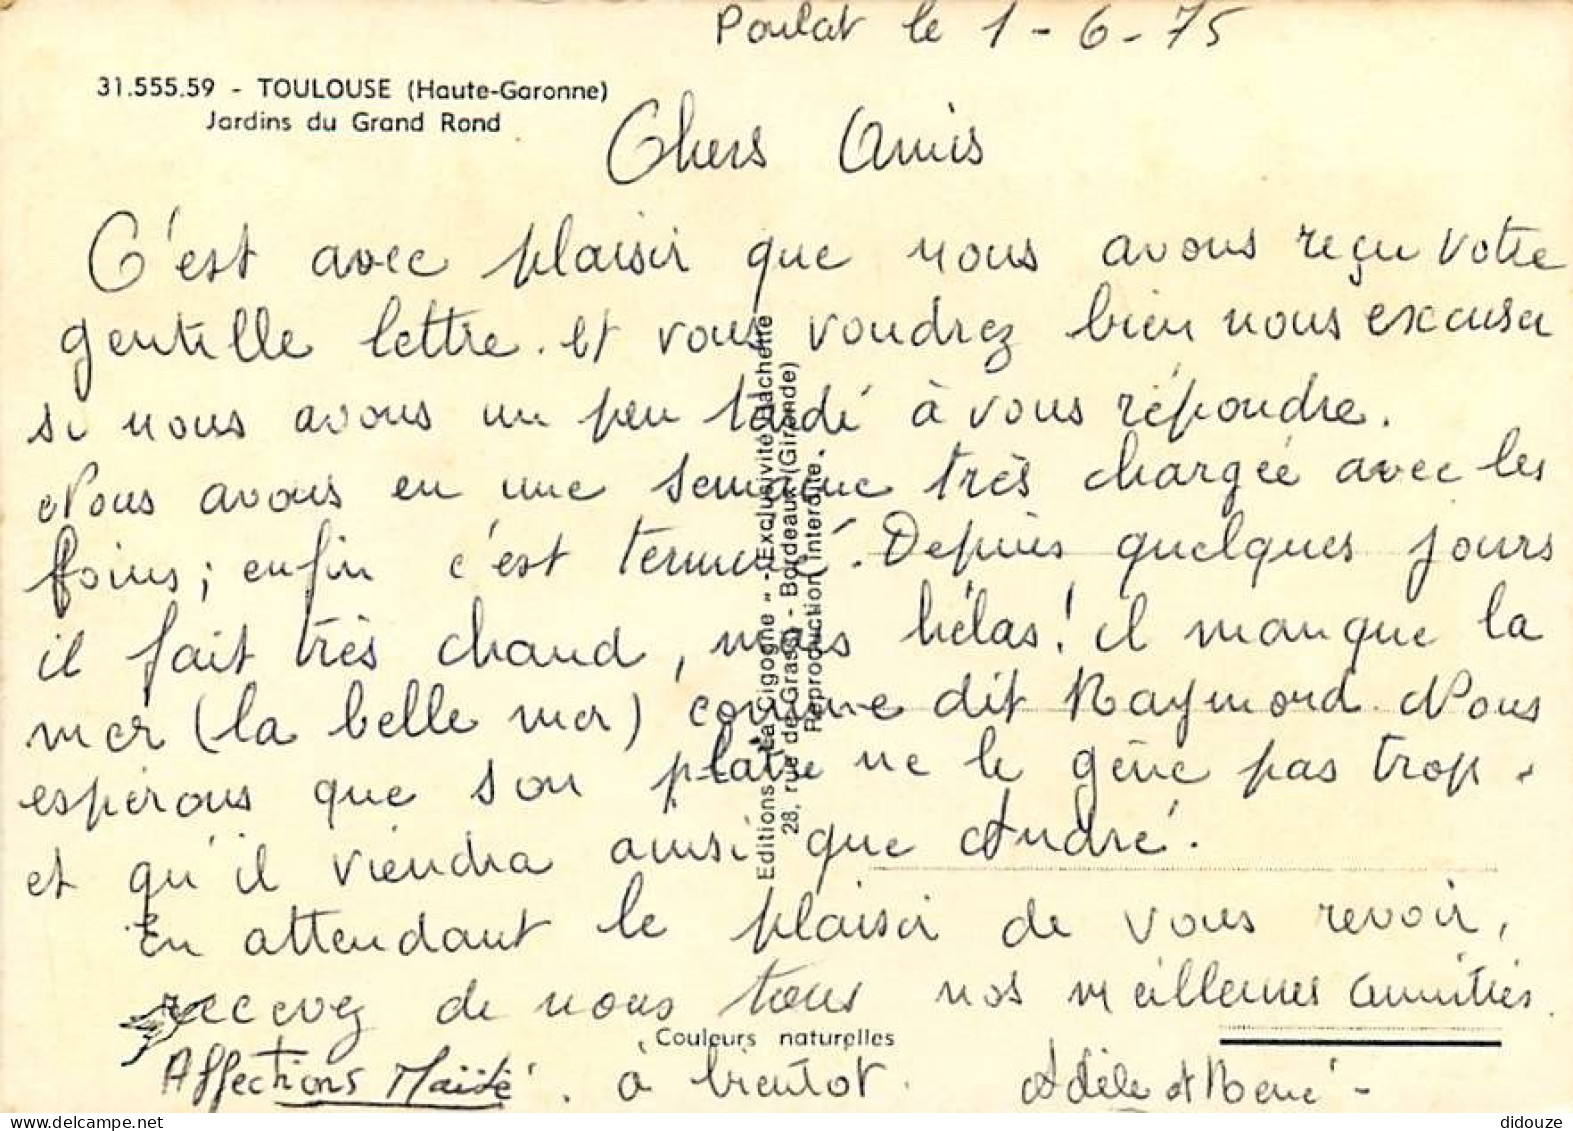 Poulat le 1-6-75
31.555.59 - TOULOUSE (Haute-Garonne)
Jardins du Grand Rond
Chers Amis
C'est avec plaisir que nous avons reçu votre
gentille lettre. et vous voudrez bien nous excuser
si nous avons un peu tardé à vous répondre.
Nous avons eu une semaine très chargée avec les
foins ; enfin c'est terminé. Depuis quelques jours
il fait très chaud, mais hélas! il manque la
mer (la belle mer) comme dit Raymond. Nous
espérons que son platre ne le gêne pas trop.
et qu'il viendra ainsi que André.
En attendant le plaisir de vous revoir,
recevez de nous tous nos meilleures amitiés.
Affections Maïté. à bientôt. Adèle et René -
Editions "La Cigogne" - Exclusivité Hachette
28, rue de Grassi - Bordeaux (Gironde)
Reproduction Interdite.
Couleurs naturelles
didouze